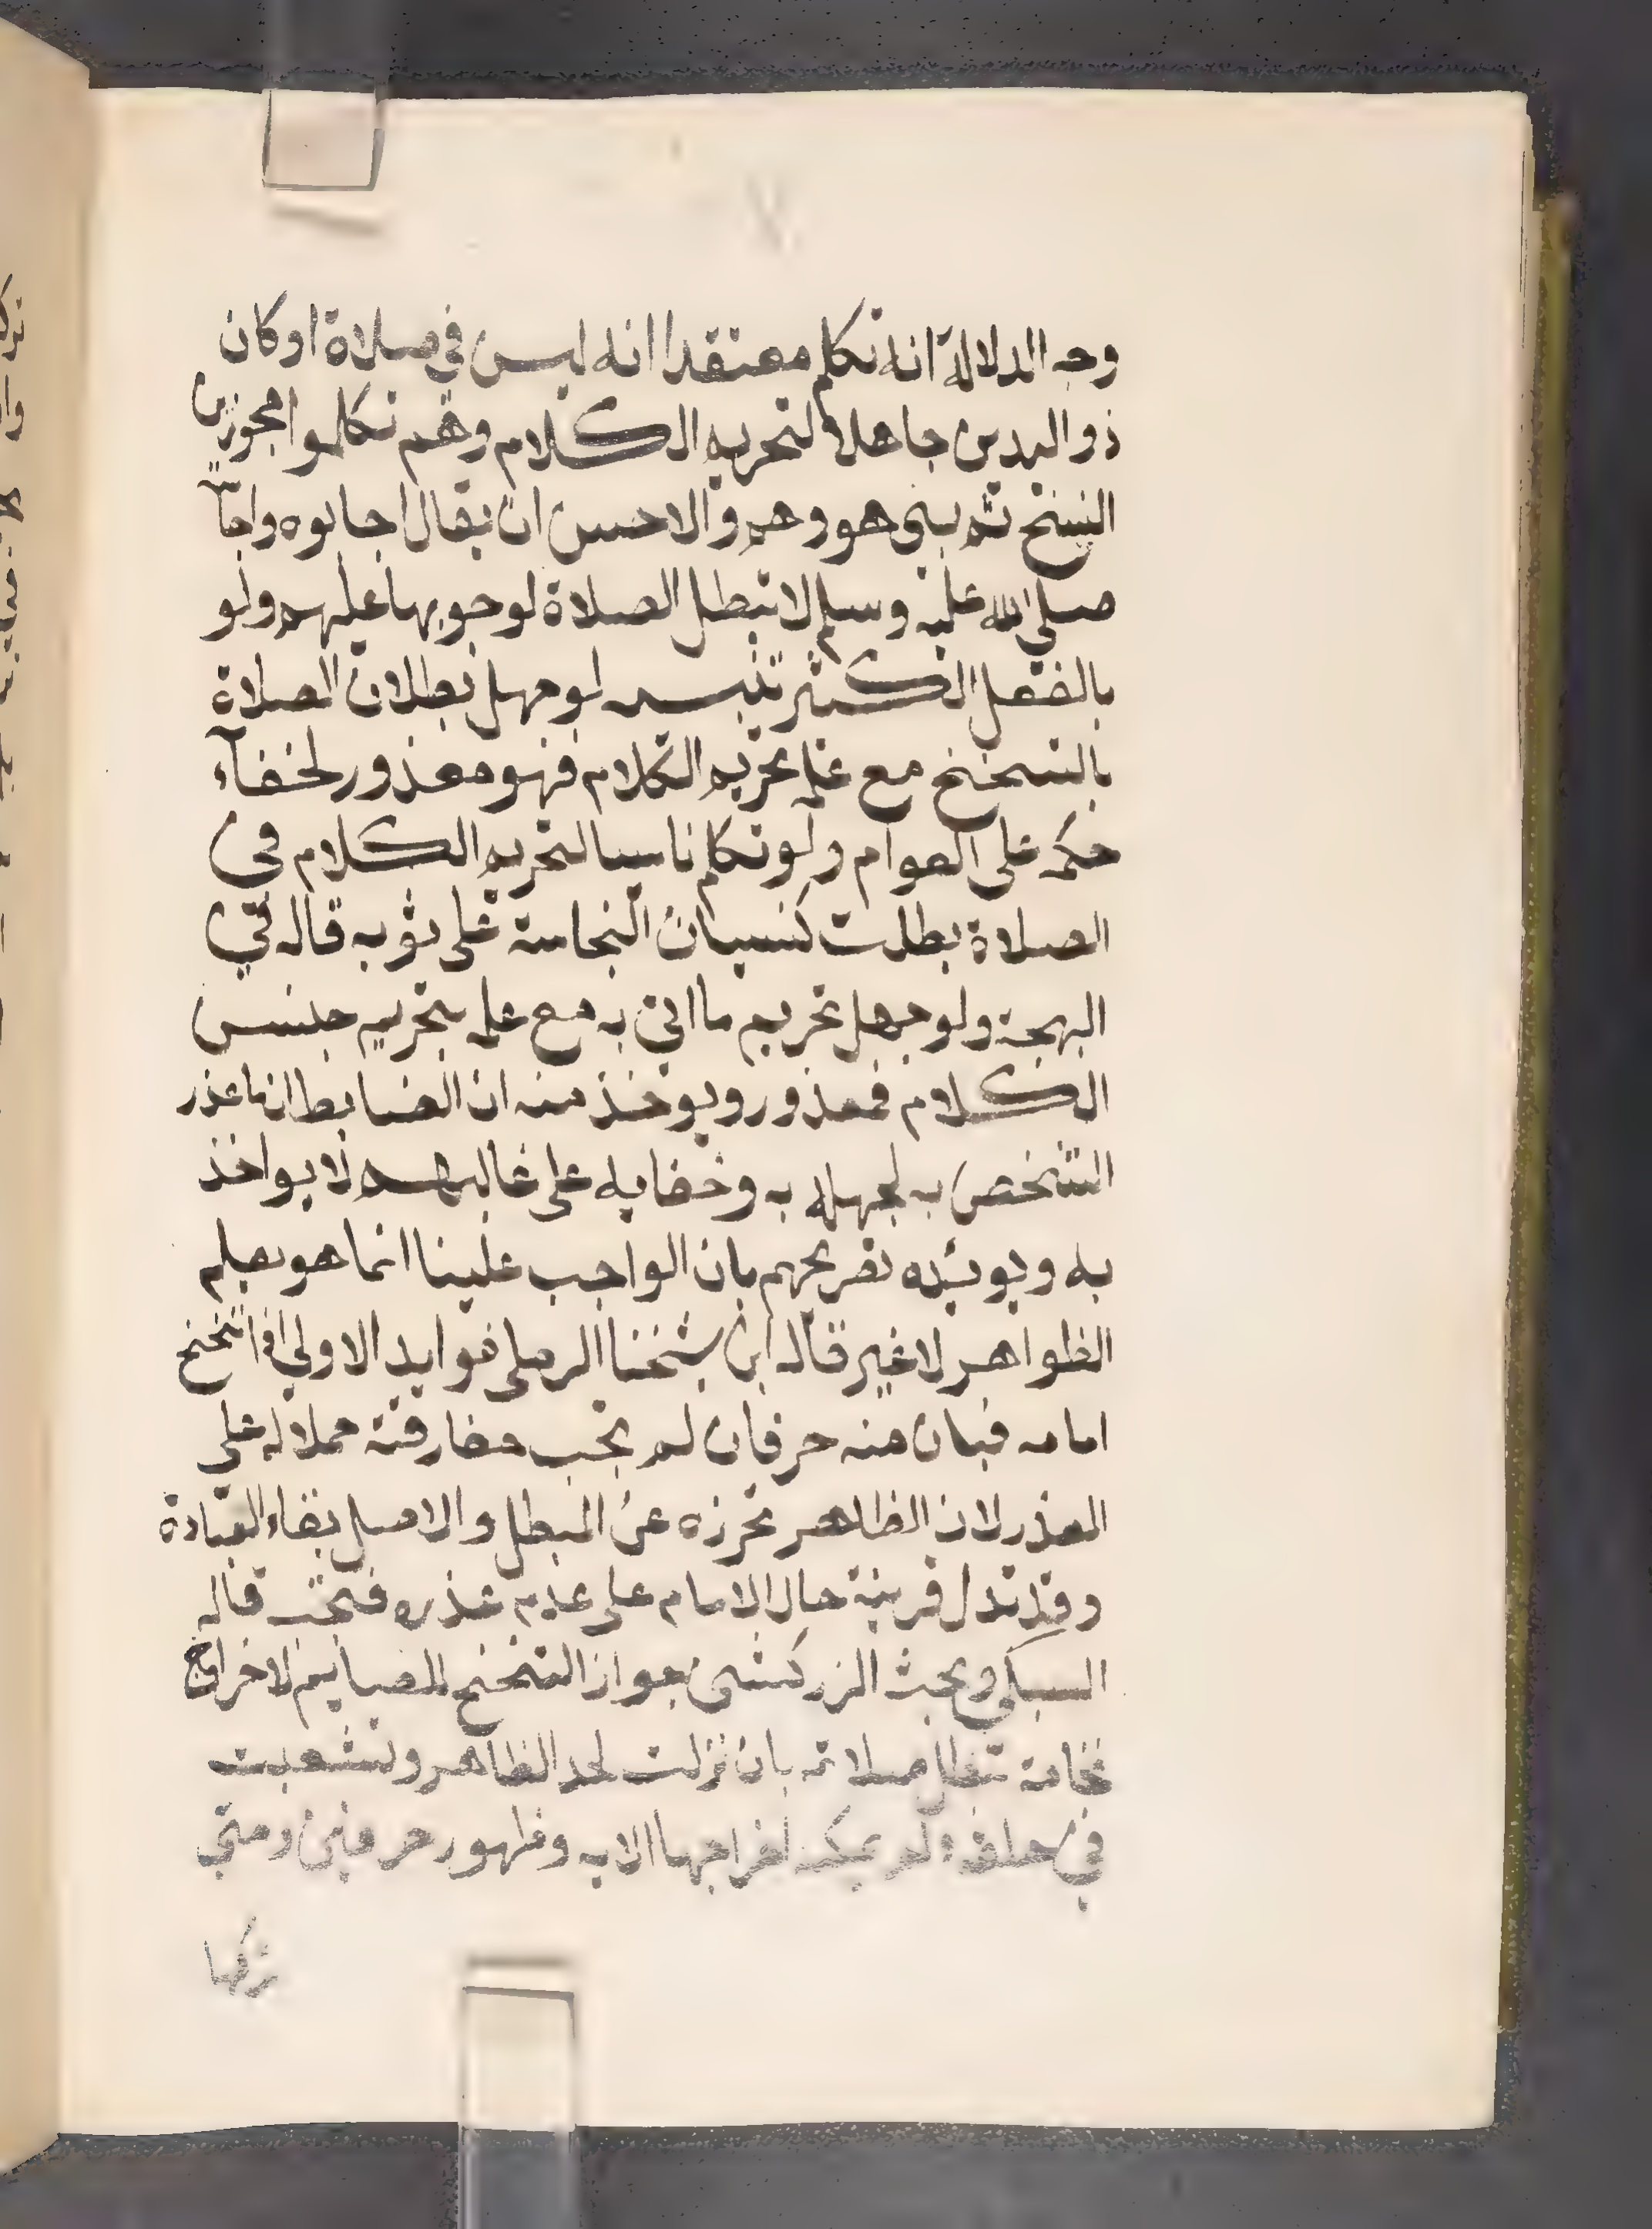 وجه الدلالة انه تكلم معتقدا انه ليس في صلاة اوكان
ذو اليدين جاهلا لتحريم الكلام وهم تكلموا مجوزين
النسخ ثم بنى هو وهم والاحسن ان يقال اجابوه واجابته
صلى الله عليه وسلم لا تبطل الصلاة لوجوبها عليهم ولو
بالفعل الكثير تنبيه لو جهل بطلان الصلاة
بالتنحنح مع علم تحريم الكلام فهو معذور لخفاء
حكمه على العوام ولو تكلم ناسيا لتحريم الكلام في
الصلاة بطلت كنسيان النجاسة على ثوبه قاله في
البهجة ولو جهل تحريم ما اتى به مع علم بتحريم جنس
الكلام فمعذور ويوخذ منه ان الضابط ان ما عذر
الشخص به لجهله به وخفايه على غالبهم لا يواخذ
به ويويده تصريحهم بان الواجب علينا انما هو تعلم
الظواهر لا غير قاله ابن شيخنا الرملى فوايد الاولى اذا تنحنح
امامه فبان منه حرفان لم تجب مفارقته حملا له على
العذر لان الظاهر تحرزه عن المبطل والاصل بقاء العبادة
وقد تدل قرينة حال الامام على عدم عذره فتجب قاله
السبكى وبحث الزركشى جواز التنحنح للصايم لاخراج
نخامة تبطل صلاته بان نزلت لحد الظاهر وتشعبت
في حلقه ولم يمكنه اخراجها الا به وظهور حرفين ومتى
تركها